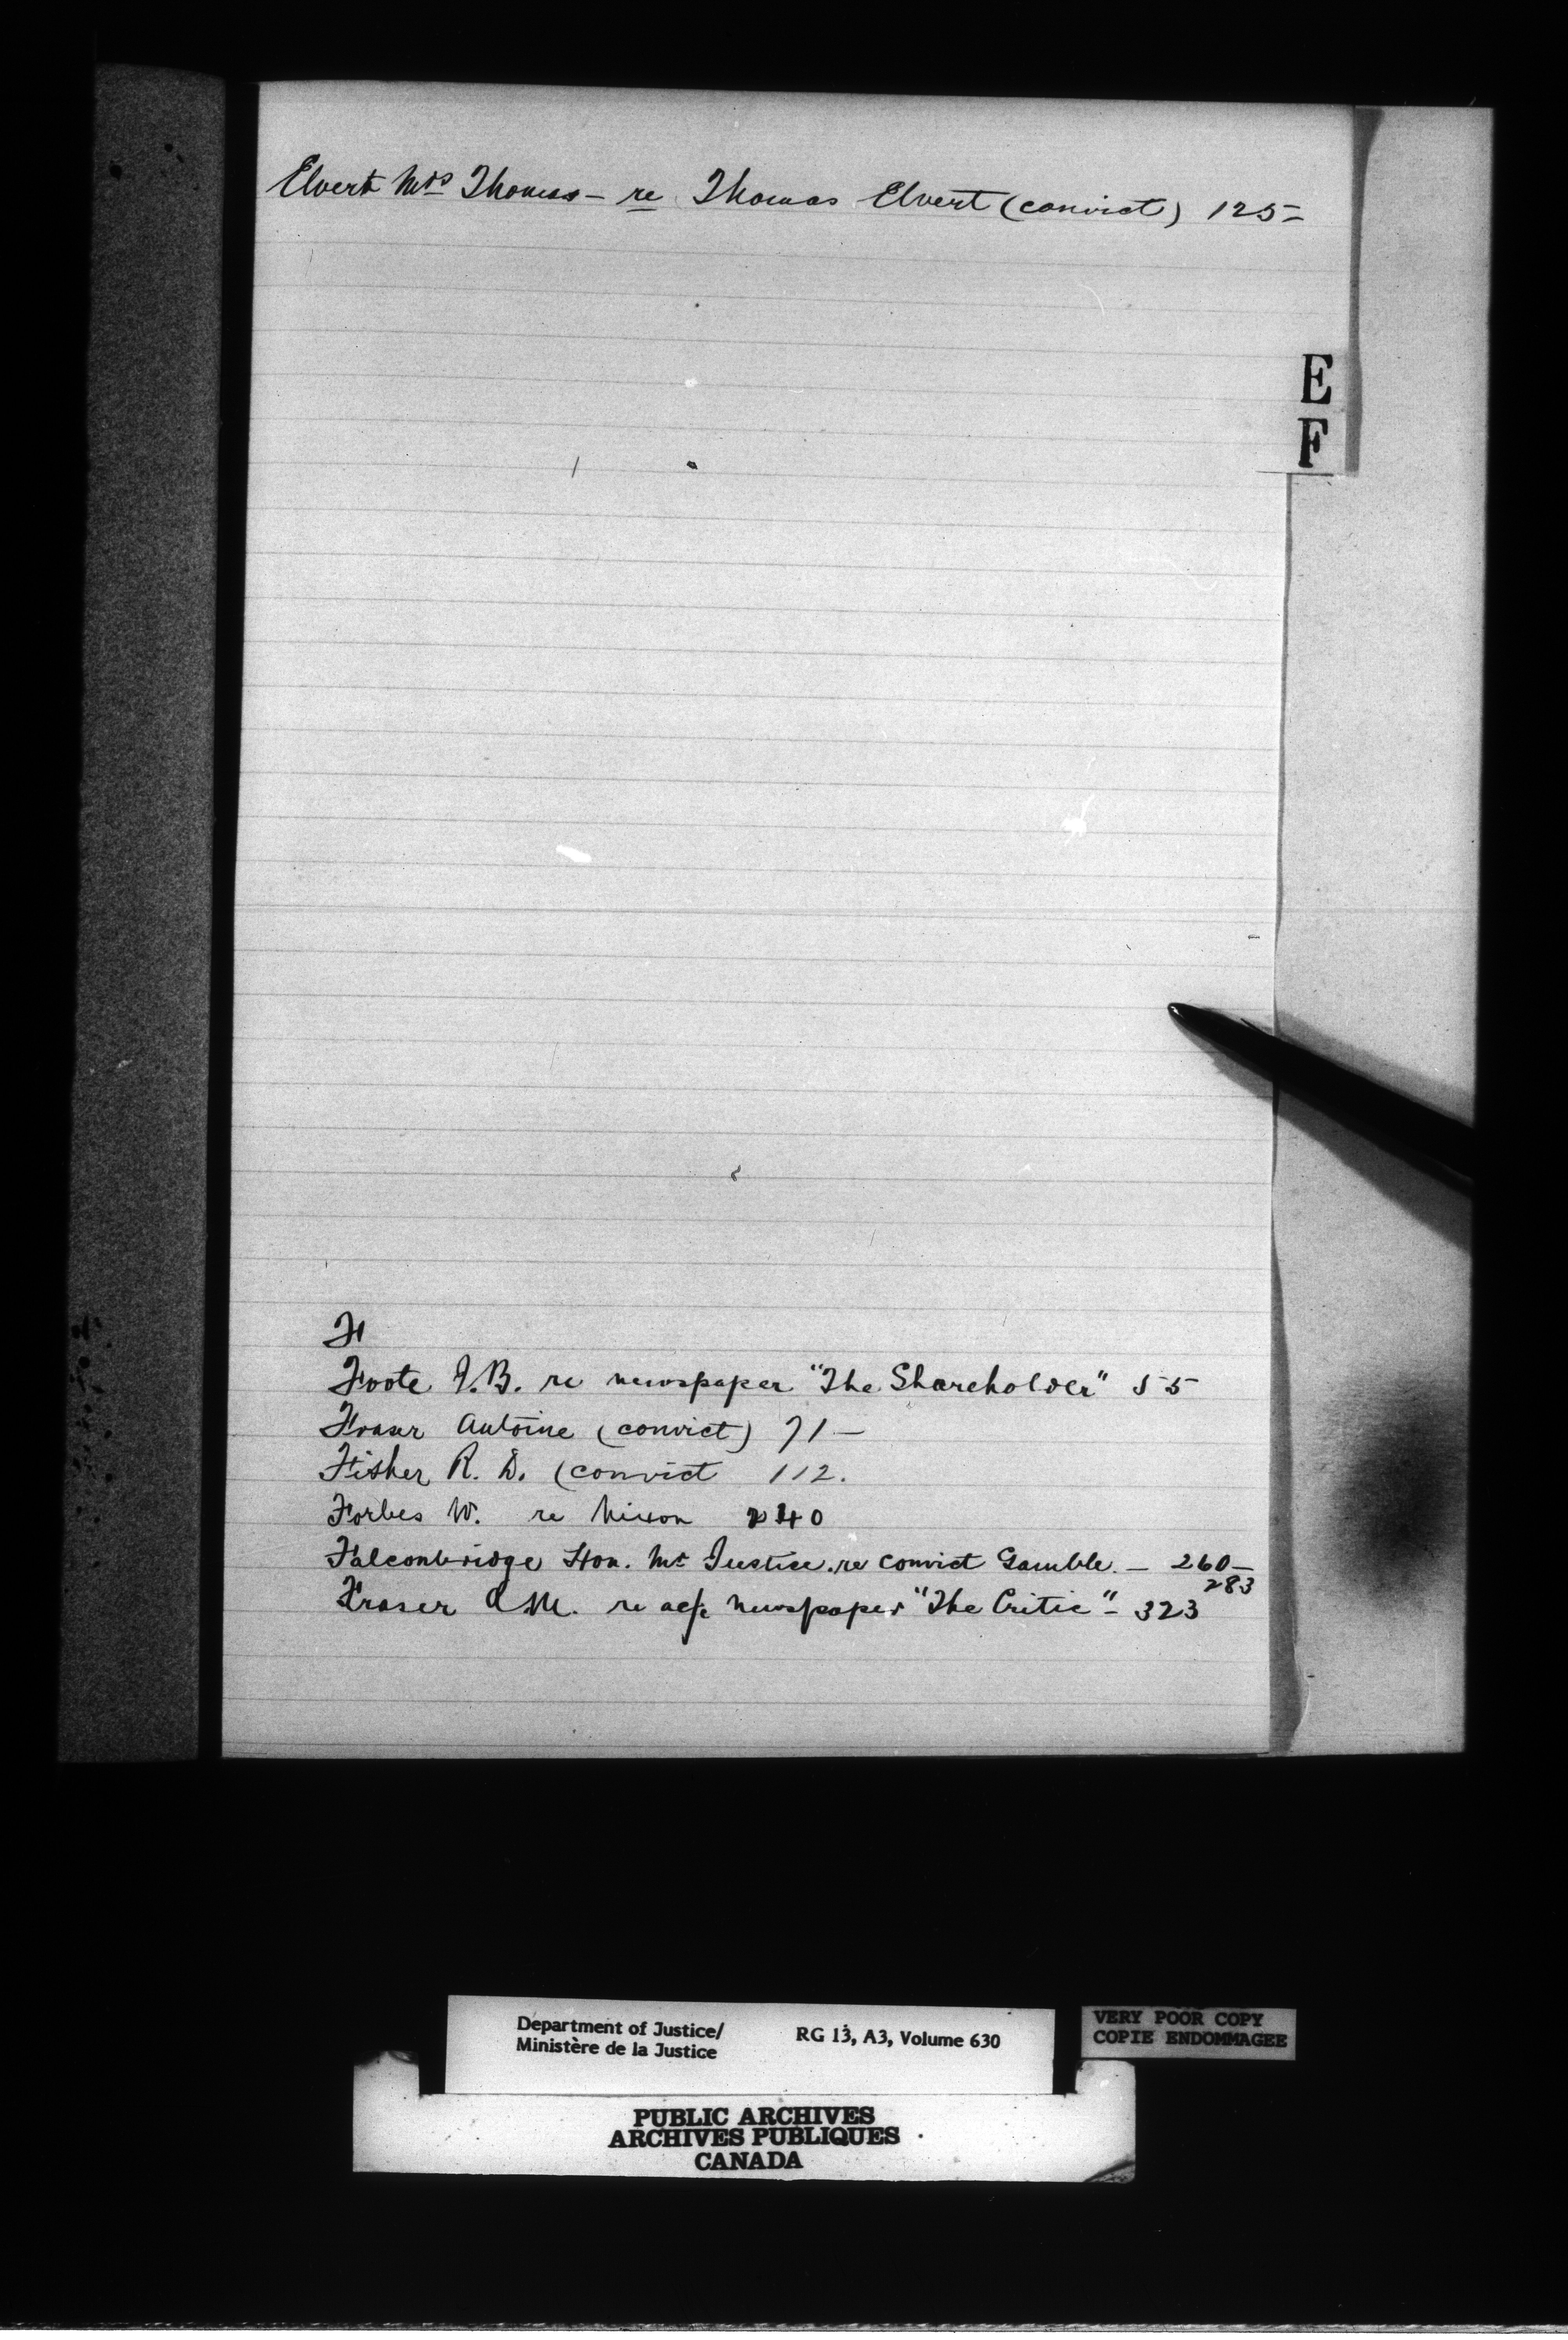 Elvert Mrs Thomas - re Thomas Elvert (convict) 125-
E
F
F
Foote J.B. re newspaper "The Shareholder" 55
Fraser Antoine (convict) 71-
Fisher R. D. (convict 112.
Forbes W. re Nixon 240
Falconbridge Hon. Mr Justice. re convict Gamble. - 260-
283
Fraser re a/c newspaper "The Critic" - 323
Department of Justice/ RG 13, A3, Volume 630
Ministère de la Justice
VERY POOR COPY
COPIE ENDOMMAGEE
PUBLIC ARCHIVES
ARCHIVES PUBLIQUES
CANADA